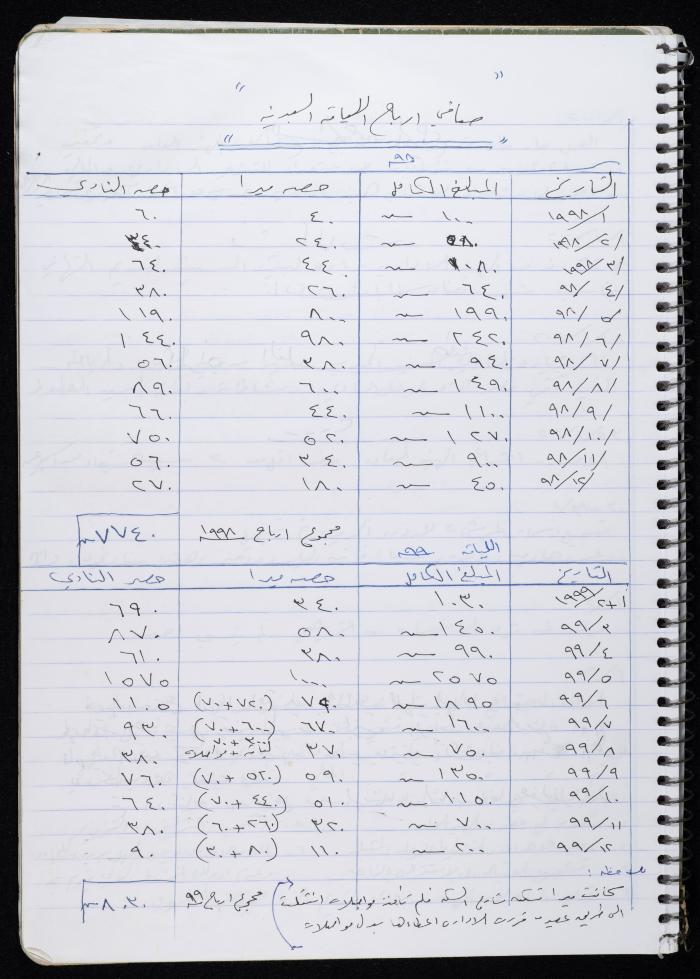 صافي ارباح اللياقه البدنية
٩٨
التاريخ المبلغ الكامل حصه ميرا حصه النادي
١٩٩٨/١ ١٠٠ ٤٠ ٦٠
١٩٩٨/٢ ٥٨٠ ٢٤٠ ٣٤٠
١٩٩٨/٣ ١٠٨٠ ٤٤٠ ٦٤٠
٩٨/٤ ٦٤٠ ٢٦٠ ٣٨٠
٩٨/٥ ١٩٩٠ ٨٠٠ ١١٩٠
٩٨/٦/ ٢٤٢٠ ٩٨٠ ١٤٤٠
٩٨/٧/ ٩٤٠ ٣٨٠ ٥٦٠
٩٨/٨/ ١٤٩٠ ٦٠٠ ٨٩٠
٩٨/٩/ ١١٠٠ ٤٤٠ ٦٦٠
٩٨/١٠/ ١٢٧٠ ٥٢٠ ٧٥٠
٩٨/١١/ ٩٠٠ ٣٤٠ ٥٦٠
٩٨/١٢/ ٤٥٠ ١٨٠ ٢٧٠
مجموع ارباح ١٩٩٨ ٧٧٤٠
اللياقة ٩٩
التاريخ المبلغ الكامل حصه ميرا حصه النادي
١٩٩٩/٢+١ ١٠٣٠ ٣٤٠ ٦٩٠
٩٩/٣ ١٤٥٠ ٥٨٠ ٨٧٠
٩٩/٤ ٩٩٠ ٣٨٠ ٦١٠
٩٩/٥ ٢٥٧٥ ١٠٠٠ ١٥٧٥
٩٩/٦ ١٨٩٥ ٧٩٠ (٧٢٠+٧٠) ١١٠٥
٩٩/٧ ١٦٠٠ ٦٧٠ (٦٠٠+٧٠) ٩٣٠
٩٩/٨ ٧٥٠ ٣٧٠ ٣٠٠+٧٠ ٣٨٠
٩٩/٩ ١٣٥٠ ٥٩٠ (٥٢٠+٧٠) ٧٦٠
٩٩/١٠ ١١٥٠ ٥١٠ (٤٤٠+٧٠) ٦٤٠
٩٩/١١ ٧٠٠ ٣٢٠ (٢٦٠+٦٠) ٣٨٠
٩٩/١٢ ٢٠٠ ١١٠ (٨٠+٣٠) ٩٠
ملاحظه:
مجموع ارباح ٩٩ ٨٠٣٠
كانت ميرا تسكن شارع السكه فلم تأخذ مواصلات انتقلت
الى طريق قررت الاداره اعطاءها بدل مواصلات